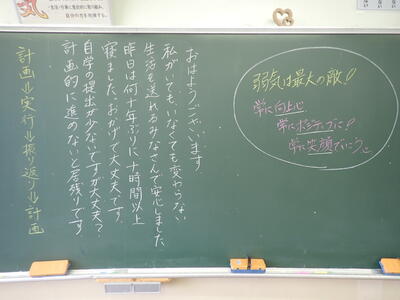 おはようございます。
私がいても、いなくても変わらない
生活を送れるみなさんで安心しました。
昨日は何十年ぶりに、十時間以上
寝ました。おかげで大丈夫です。
自学の提出が少ないですが大丈夫?
計画的に進めないと居残りです
計画⇒実行⇒振り返り⇒計画
弱気は最大の敵!!
常に向上心
常にポジティブに!
常に笑顔でいこう